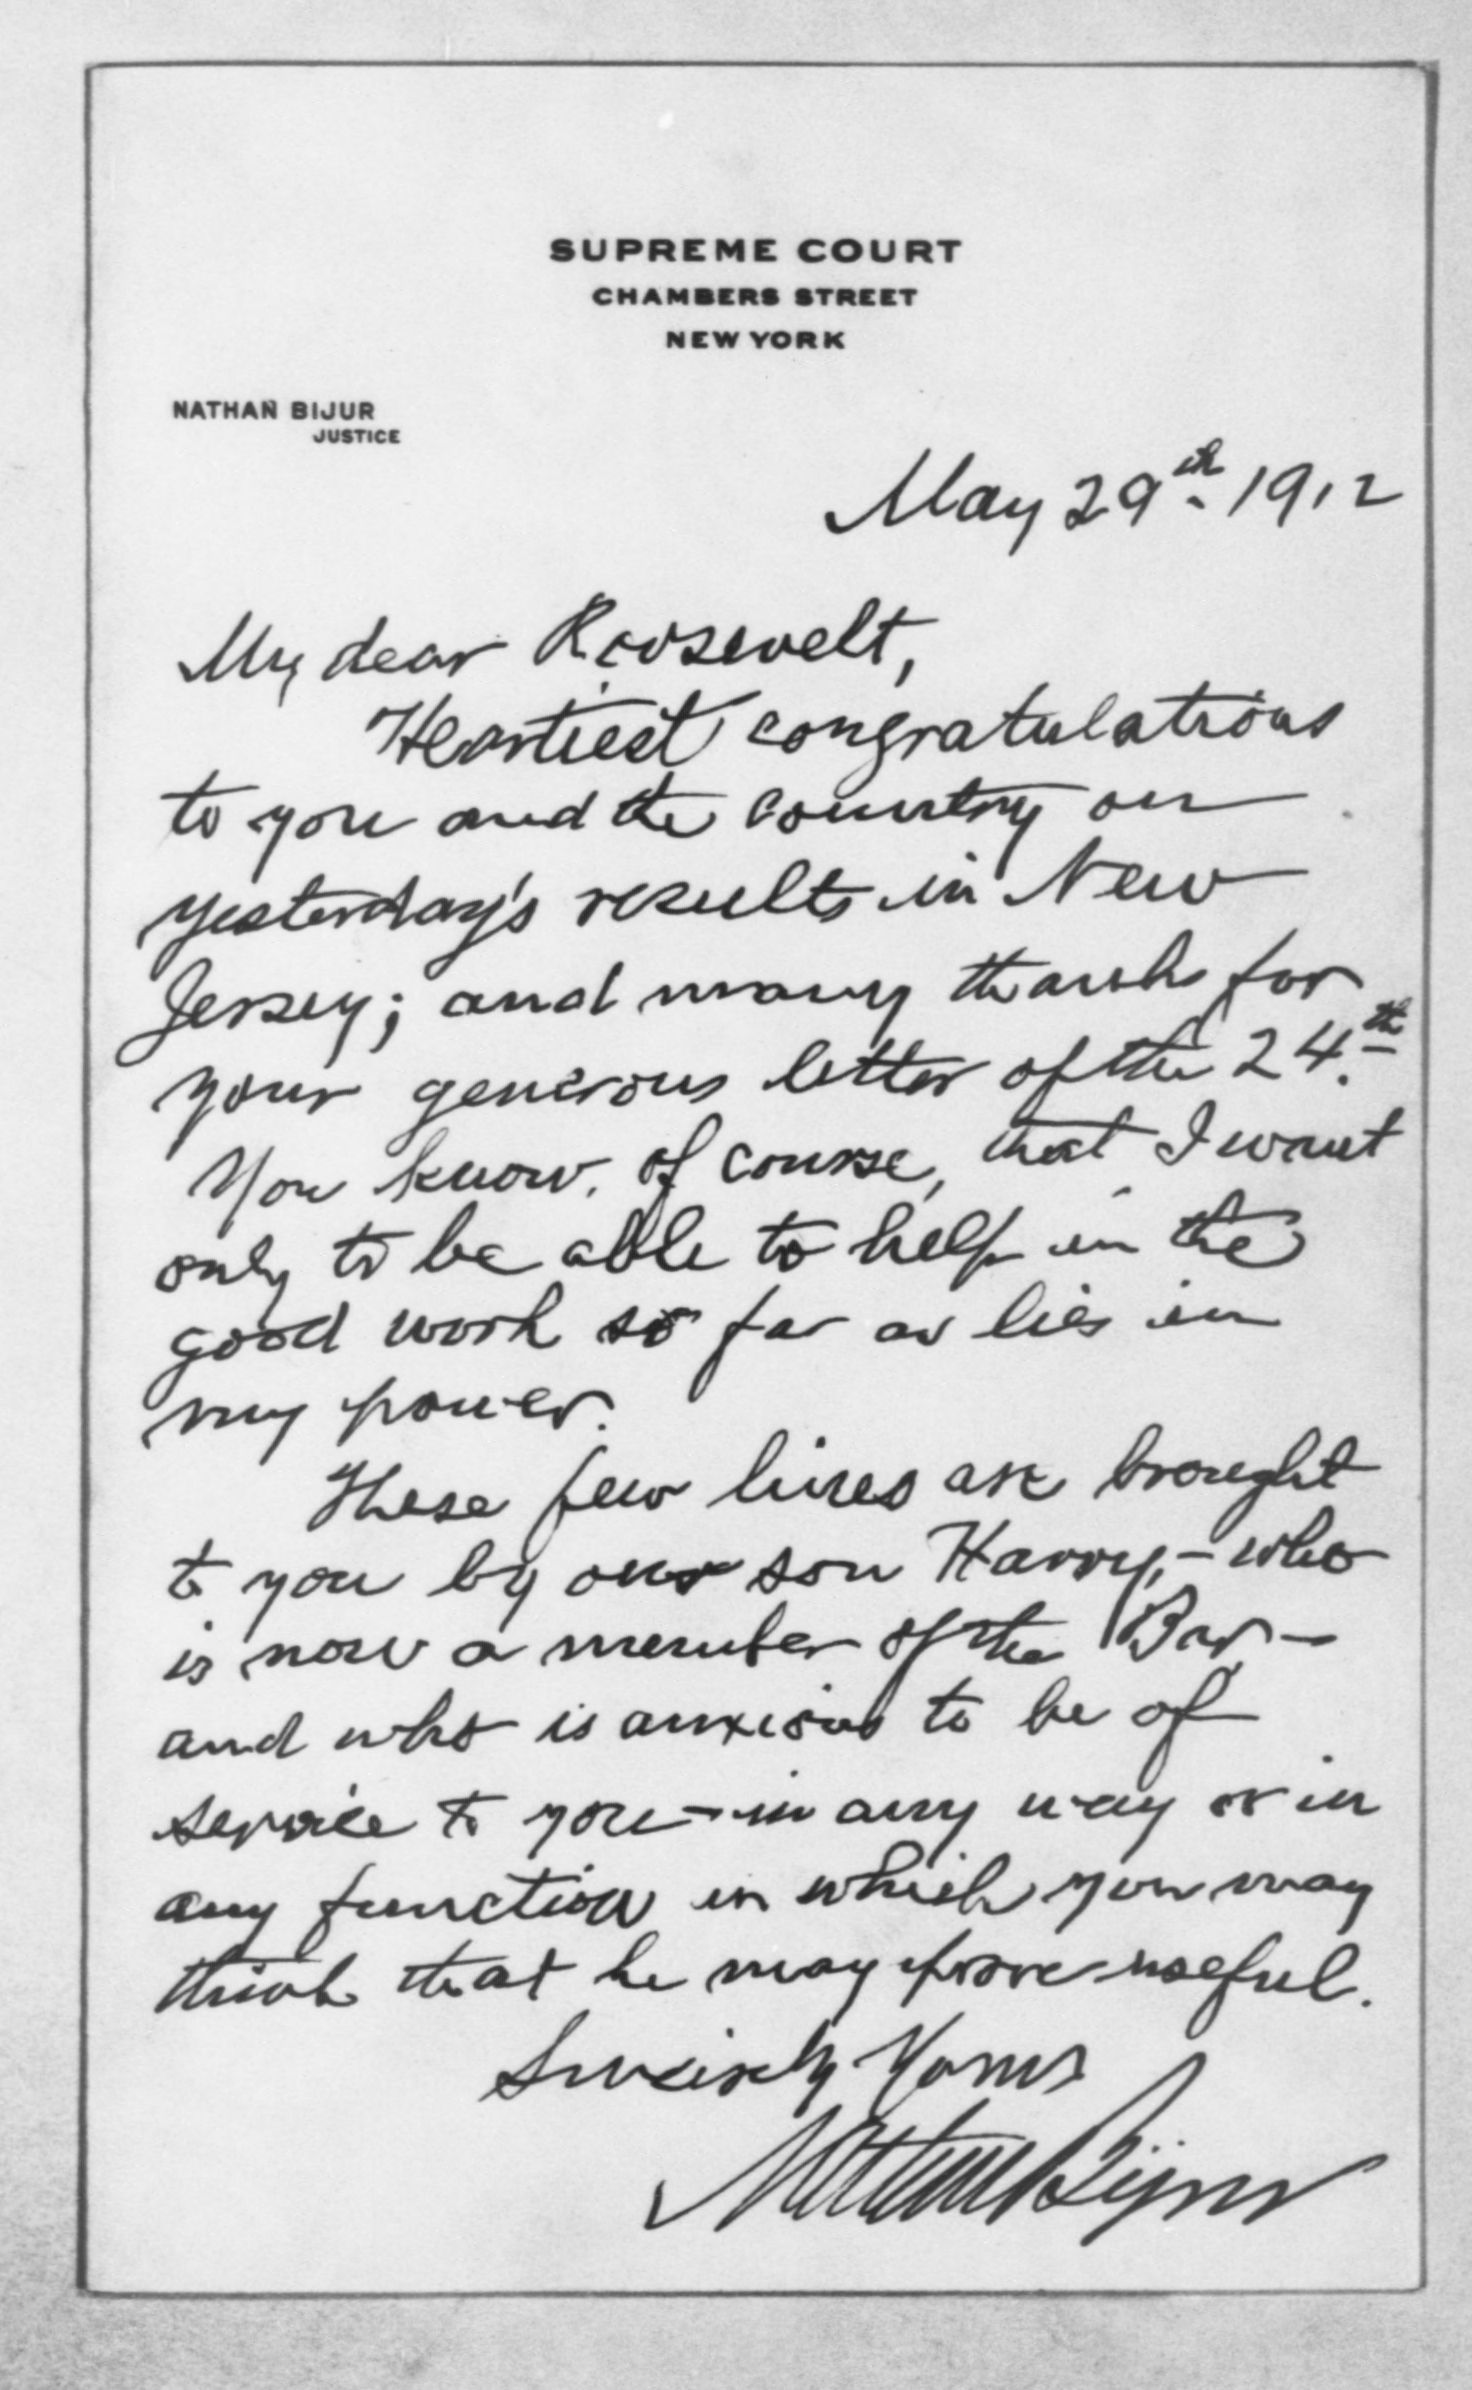 SUPREME COURT
CHAMBERS STREET
NEW YORK
NATHAN BIJUR
JUSTICE
May 29th. 1912
My dear Roosevelt,
Heartiest congratulations
to you and the country on
yesterday's results in New
Jersey; and many thanks for
your generous letter of the 24.th
You know, of course, that I want
only to be able to help in the
good work so far as lies in
my power.
These few lines are brought
to you by our son Harry,- who
is now a member of the Bar-
and who is anxious to be of
service to you - in any way or in
any function in which you may
think that he may prove useful.
Sincerely Yours
Nathan Bijur